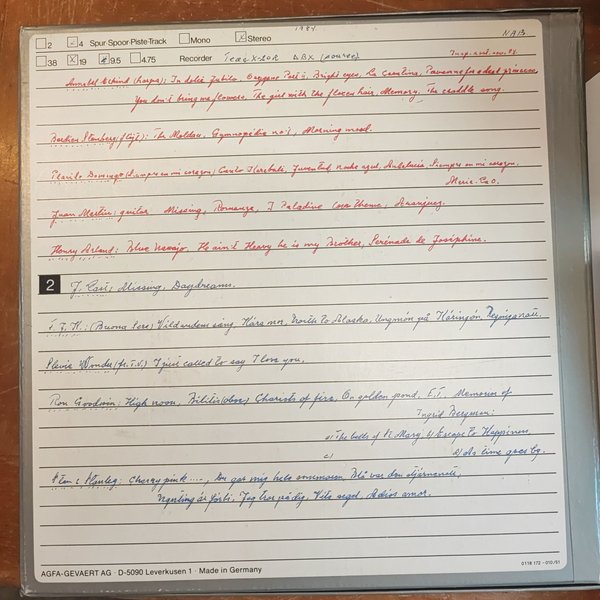 1984
2 4 Spur-Spoor-Piste-Track Mono Stereo NAB
38 19 9.5 4.75 Recorder Teac X-20R DBX (source)
Annabel (harpa); In dulci Jubilo, Bright eyes, La Carolina, Pavanne for a dead princess,
You don't bring me flowers, The girl with the flaxen hair, Memory, The craddle song.
Stenberg (flöjt): The Moldau, Gymnopédia no:1, Morning mood.
Placido Domingo (Siempre en mi corazon) Canto Karabali, Juventud, Noche azul, Andalucia, Siempre en mi corazon.
Maria-La O.
Juan Martin: guitar Missing, Romanza, I Paladino theme, Aranjuez.
Henry Arland: Blue Navajo, He ain't Heavy he is my Brother, Serenade de Joséphine.
2 J. Last; Missing, Daydreams.
(Buona Sera) sång, Kära mor, North to Alaska, Ungmön på Käringön,
Stevie Wonder (fr. T.V.) I just called to say I love you.
Ron Goodwin: High noon, Bilitis (oboe) Chariots of fire, On golden pond, E.T. Memories of
Ingrid Bergman:
a) The bells of St. Mary, b) Escape to Happiness,
c) c) As time goes by.
Sten & Stanley; Cherry pink ...., Du gav mig hela sommaren, Blå var den stjärnenatt,
Ingenting är förbi, Jag tror på dig, Vita segel, Adios amor.
AGFA-GEVAERT AG · D-5090 Leverkusen 1 · Made in Germany
0118 172 - 010/51